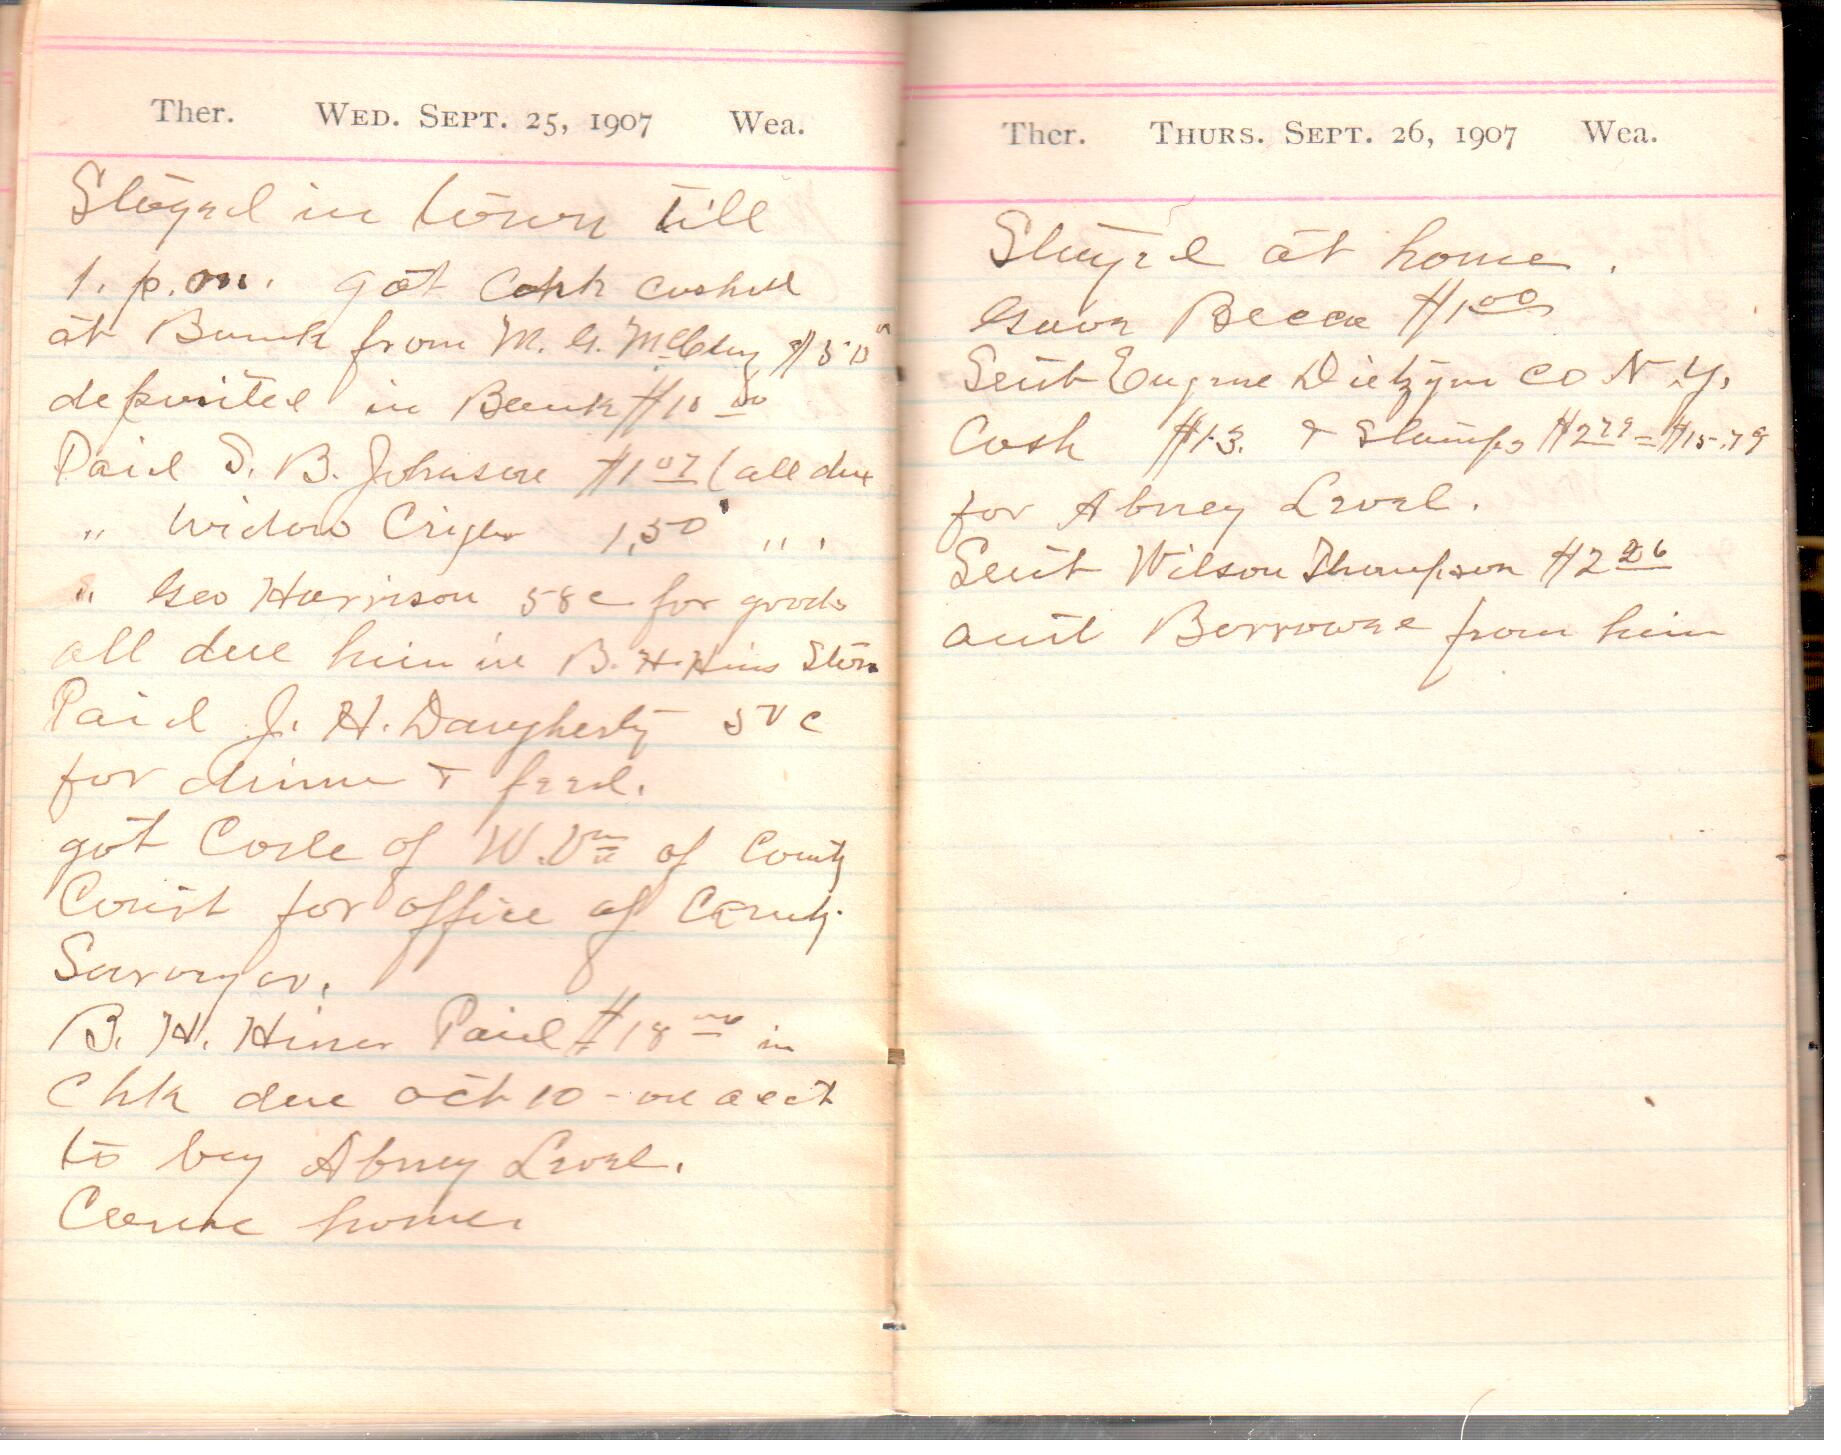 Ther. WED. SEPT. 25, 1907 Wea.
Stayed in town till
1. p.m. got Chk cashed
at Bank from M. G. $50
deposited in Bank $10 00
Paid D. B. Johnson $1 07 (all due
" Widow Crigler 1,50 " "
" Geo Harrison 58c for goods
all due him in B. H. Hiners Store
Paid J. H. Daugherty 50c
for dinner & feed.
got Code of W. Va of County
Court for office of County
Surveyor.
B. H. Hiner Paid $18 00 in
Chk due Oct 10 - on acct
to buy Abney Level.
Came home.
Ther. THURS. SEPT. 26, 1907 Wea.
Stayed at home.
Gave Becca $1.00
Sent Eugene Dietzgen Co N.Y.
Cash $13. & Stamps $2 79 = $15.79
for Abney Level.
Sent Wilson Thompson $2
amt Borrowed from him